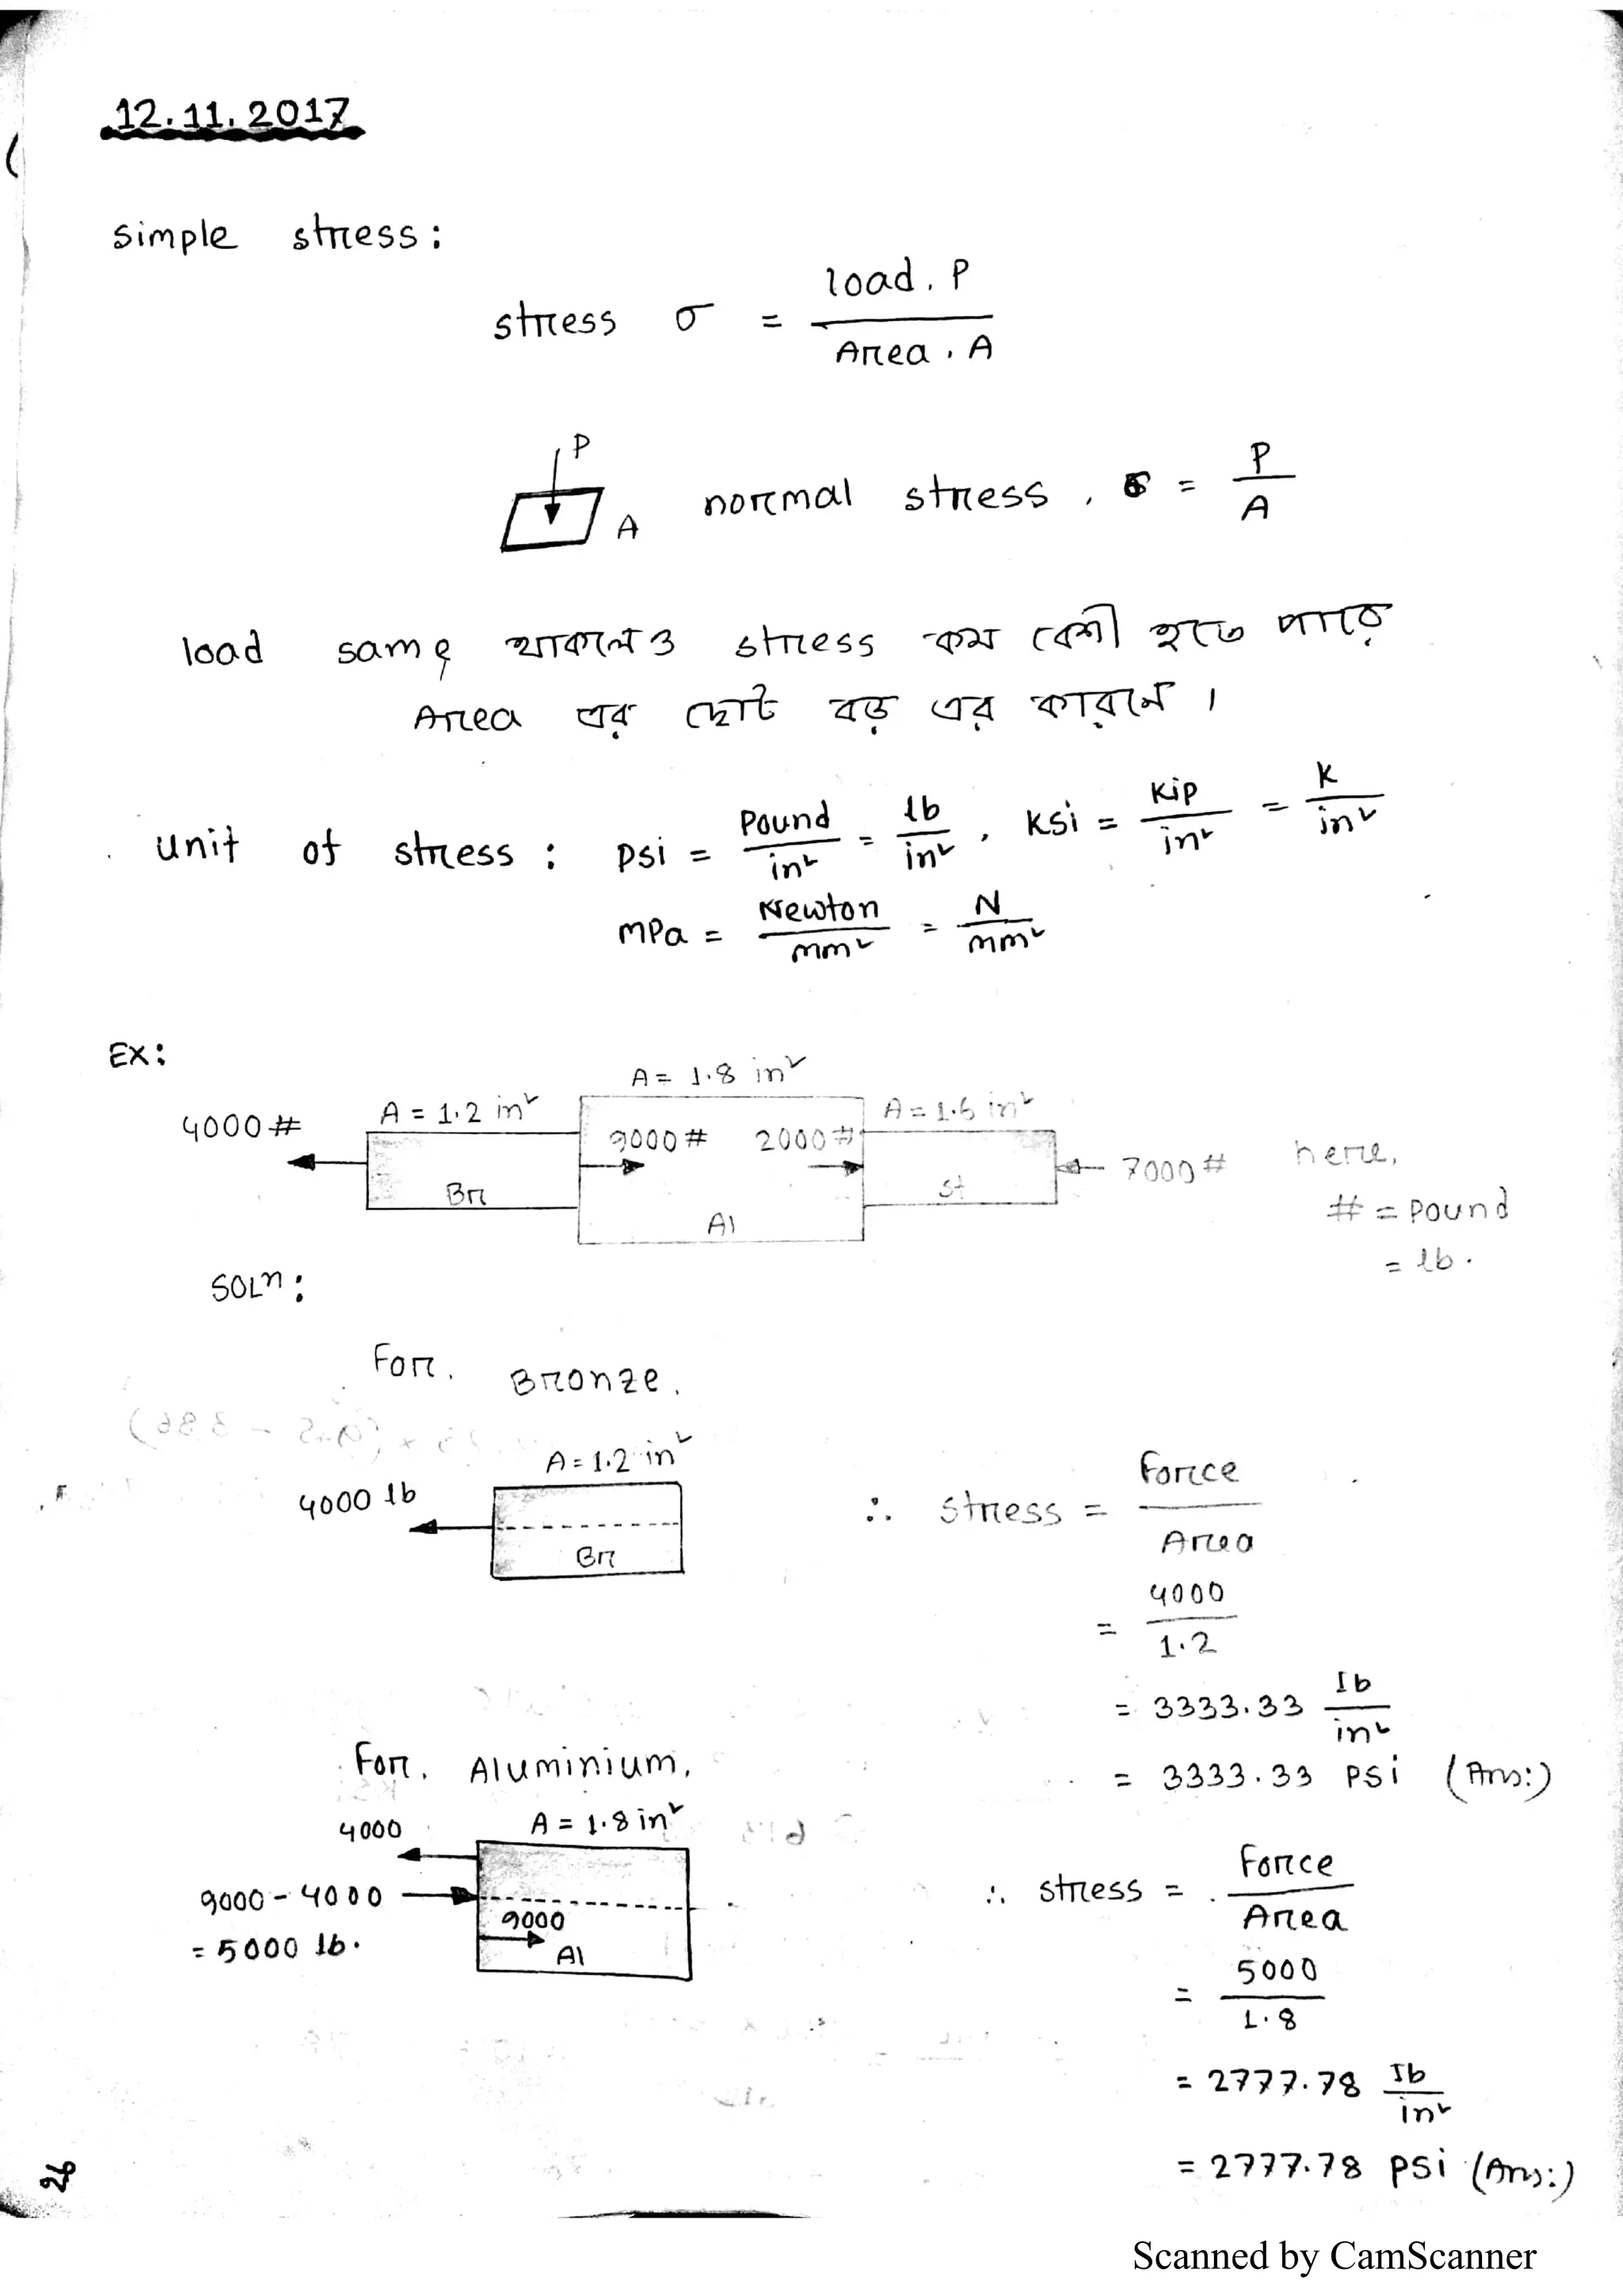 12.11.2017
simple stress:
stress σ = load, P / Area, A
P
A
normal stress, σ = P / A
load same থাকলেও stress কম বেশী হতে পারে
Area এর ছোট বড় এর কারনে।
unit of stress : psi = Pound / in² = lb / in², Ksi = Kip / in² = K / in²
mPa = Newton / mm² = N / mm²
EX:
A = 1.8 in²
4000# A = 1.2 in² A = 1.6 in²
9000# 2000#
7000# here,
Br Al St
# = Pound
= lb.
SOLn:
For, Bronze,
A = 1.2 in²
4000 lb
Br
∴ stress = Force / Area
= 4000 / 1.2
= 3333.33 lb / in²
= 3333.33 psi (Ans:)
For, Aluminium,
4000 A = 1.8 in²
9000 - 4000
= 5000 lb.
9000
Al
∴ stress = Force / Area
= 5000 / 1.8
= 2777.78 lb / in²
= 2777.78 psi (Ans:)
26
Scanned by CamScanner